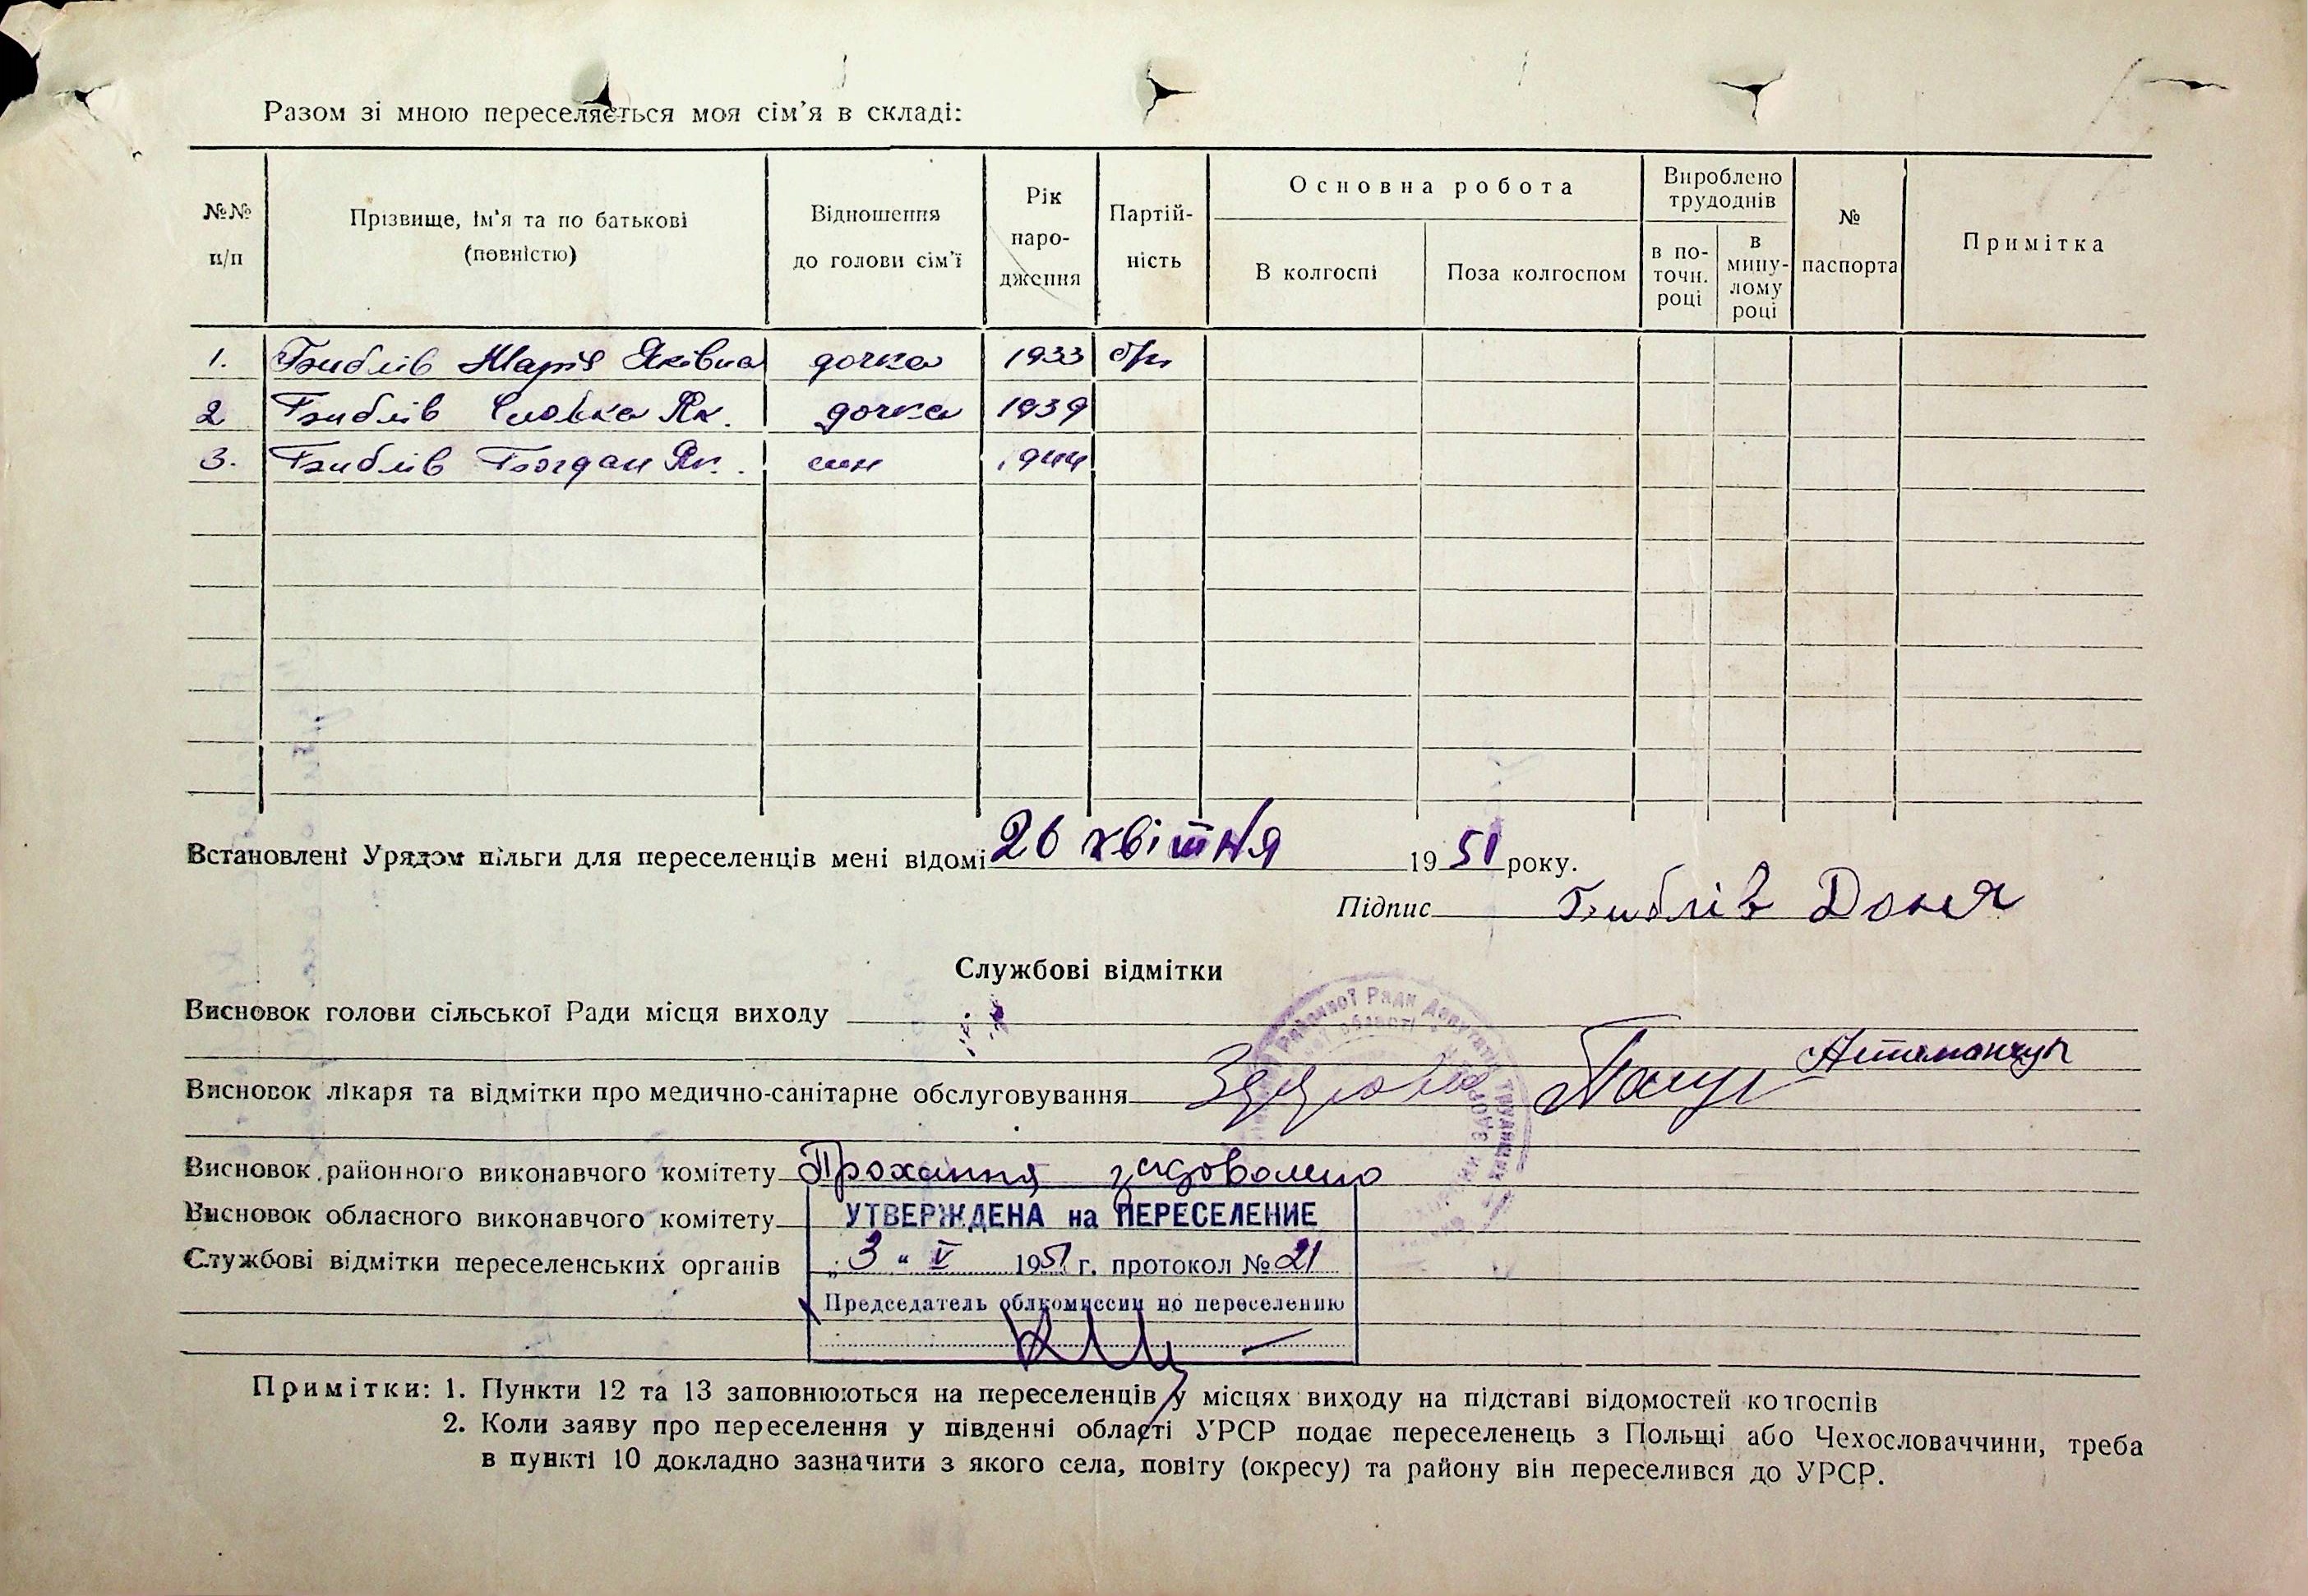 Разом зі мною переселяється моя сім'я в складі:
№№ п/п
Прізвище, ім'я та по батькові (повністю)
Відношення до голови сім'ї
Рік народження
Партійність
Основна робота
В колгоспі
Поза колгоспом
Вироблено трудоднів
в поточн. році
в минулому році
№ паспорта
Примітка
1. Марія Яківна дочка 1933 б/п
2 Славка Як. дочка 1939
3. Богдан Як. син 1944
Встановлені Урядом пільги для переселенців мені відомі 26 квітня 1951 року.
Підпис Доня
Службові відмітки
Висновок голови сільської Ради місця виходу
Висновок лікаря та відмітки про медично-санітарне обслуговування Здорова
Висновок районного виконавчого комітету Прохання задоволено
Висновок обласного виконавчого комітету
УТВЕРЖДЕНА на ПЕРЕСЕЛЕНИЕ
Службові відмітки переселенських органів
„3“ V 1951 г. протокол № 21
Председатель облкомиссии по переселению
Примітки: 1. Пункти 12 та 13 заповнюються на переселенців у місцях виходу на підставі відомостей колгоспів
2. Коли заяву про переселення у південні області УРСР подає переселенець з Польщі або Чехословаччини, треба
в пункті 10 докладно зазначити з якого села, повіту (окресу) та району він переселився до УРСР.